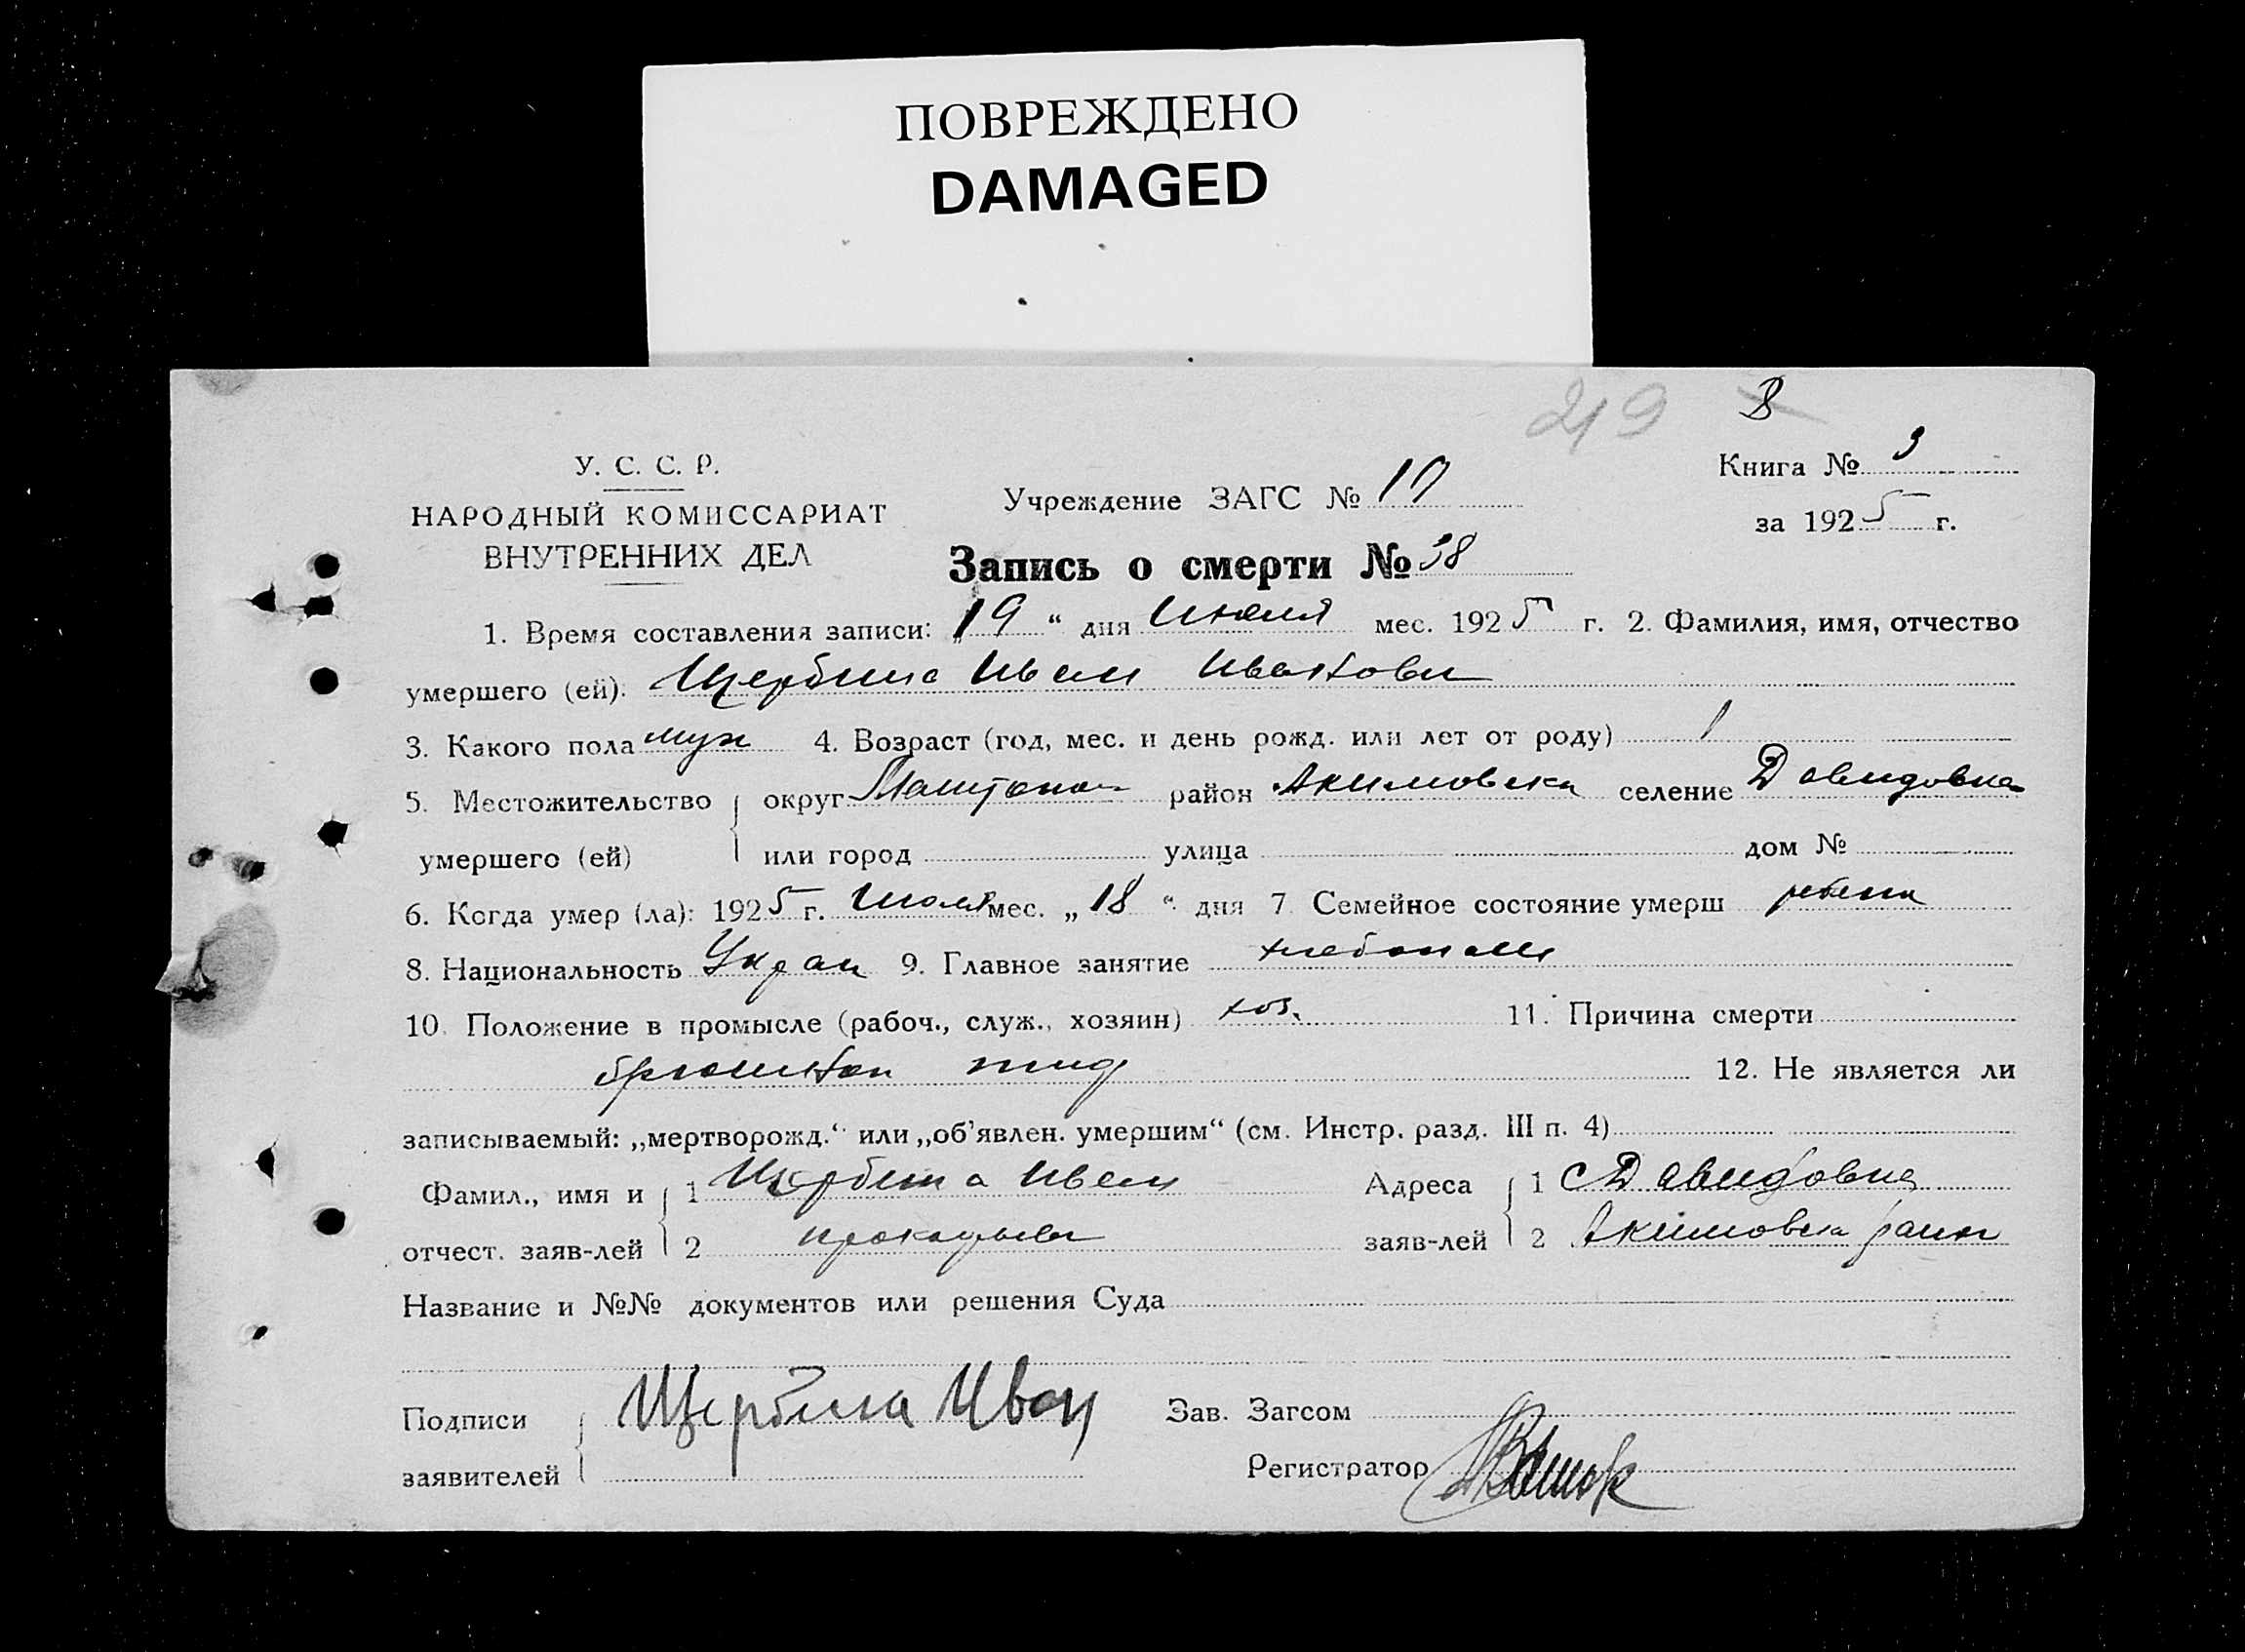 ПОВРЕЖДЕНО
DAMAGED
219 8
У. С. С. Р.
НАРОДНЫЙ КОМИССАРИАТ
ВНУТРЕННИХ ДЕЛ
Учреждение ЗАГС №
Книга № 3
за 1925 г.
Запись о смерти № 38
1. Время составления записи: „19“ дня Июля мес. 1925 г. 2. Фамилия, имя, отчество
умершего (ей): Щербина Иван Иванови
3. Какого пола муж 4. Возраст (год, мес. и день рожд. или лет от роду) 1
5. Местожительство округ район Акимовска селение Давидовка
умершего (ей) или город улица дом №
6. Когда умер (ла): 1925 г. Июля мес. „18“ дня 7 Семейное состояние умерш
8. Национальность Украи 9. Главное занятие хлебопаш
10. Положение в промысле (рабоч., служ., хозяин) хоз. 11. Причина смерти
брюшной тиф 12. Не является ли
записываемый: „мертворожд.“ или „об'явлен. умершим“ (см. Инстр. разд. III п. 4)
Фамил., имя и 1 Щербина Иван Адреса 1 С Давидовка
отчест. заяв-лей 2 заяв-лей 2 Акимовска район
Название и №№ документов или решения Суда
Подписи Щербина Иван Зав. Загсом
заявителей Регистратор